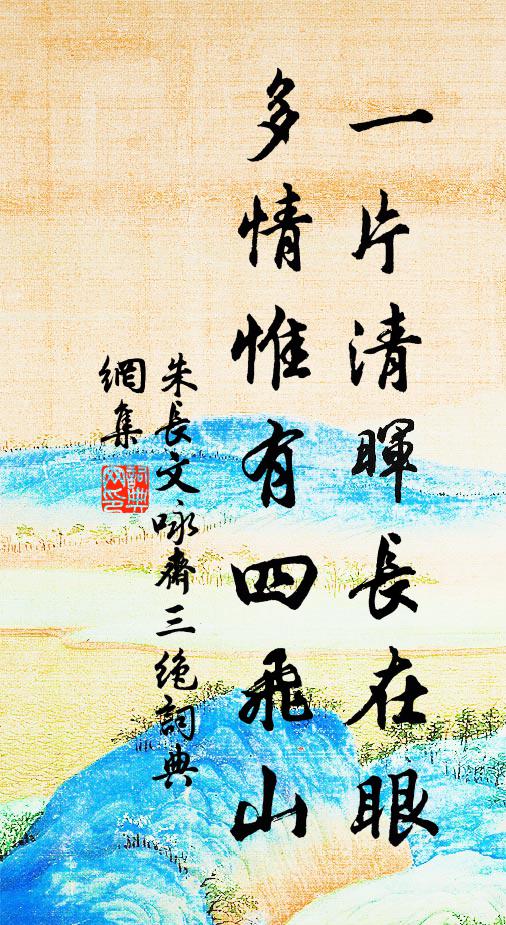 一片清暉長在眼
多情惟有四飛山
朱長文咏齋三絶詞典
網集